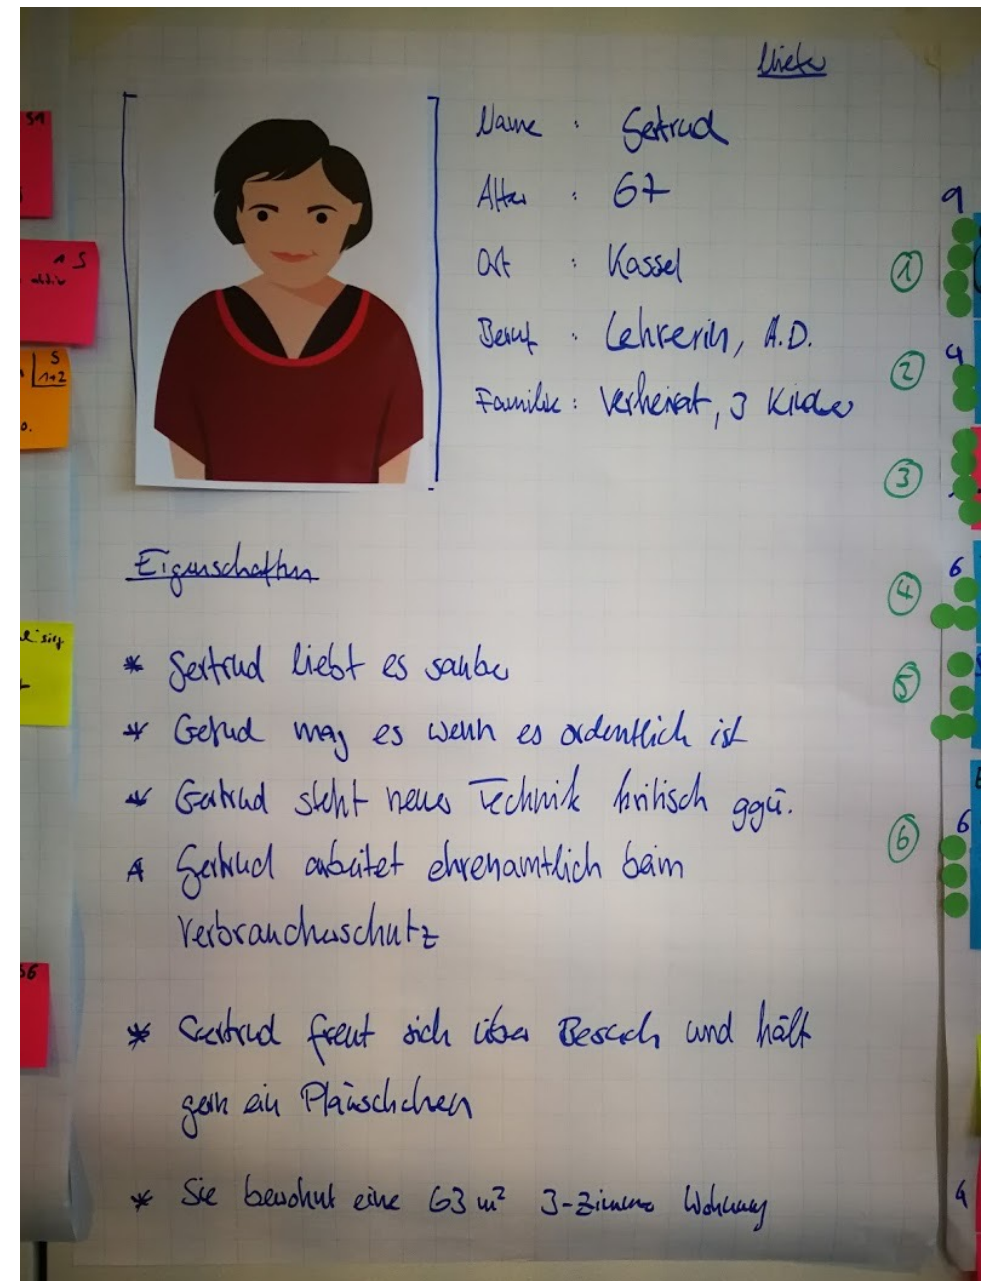 Mieter
Name : Gertrud
Alter : 67
Ort : Kassel
Beruf : Lehrerin, A.D.
Familie : Verheirat, 3 Kinder
Eigenschaften
* Gertrud liebt es sauber
* Getrud mag es wenn es ordentlich ist
* Gertrud steht neuer Technik kritisch ggü.
* Gertrud arbeitet ehrenamtlich beim
Verbraucherschutz
* Gertrud freut sich über Besuch und hält
gern ein Pläuschchen
* Sie bewohnt eine 63 m² 3-Zimmer Wohnung
1
2
3
4
5
6
9
4
6
6
4
S1
1 S
S
1+2
S6